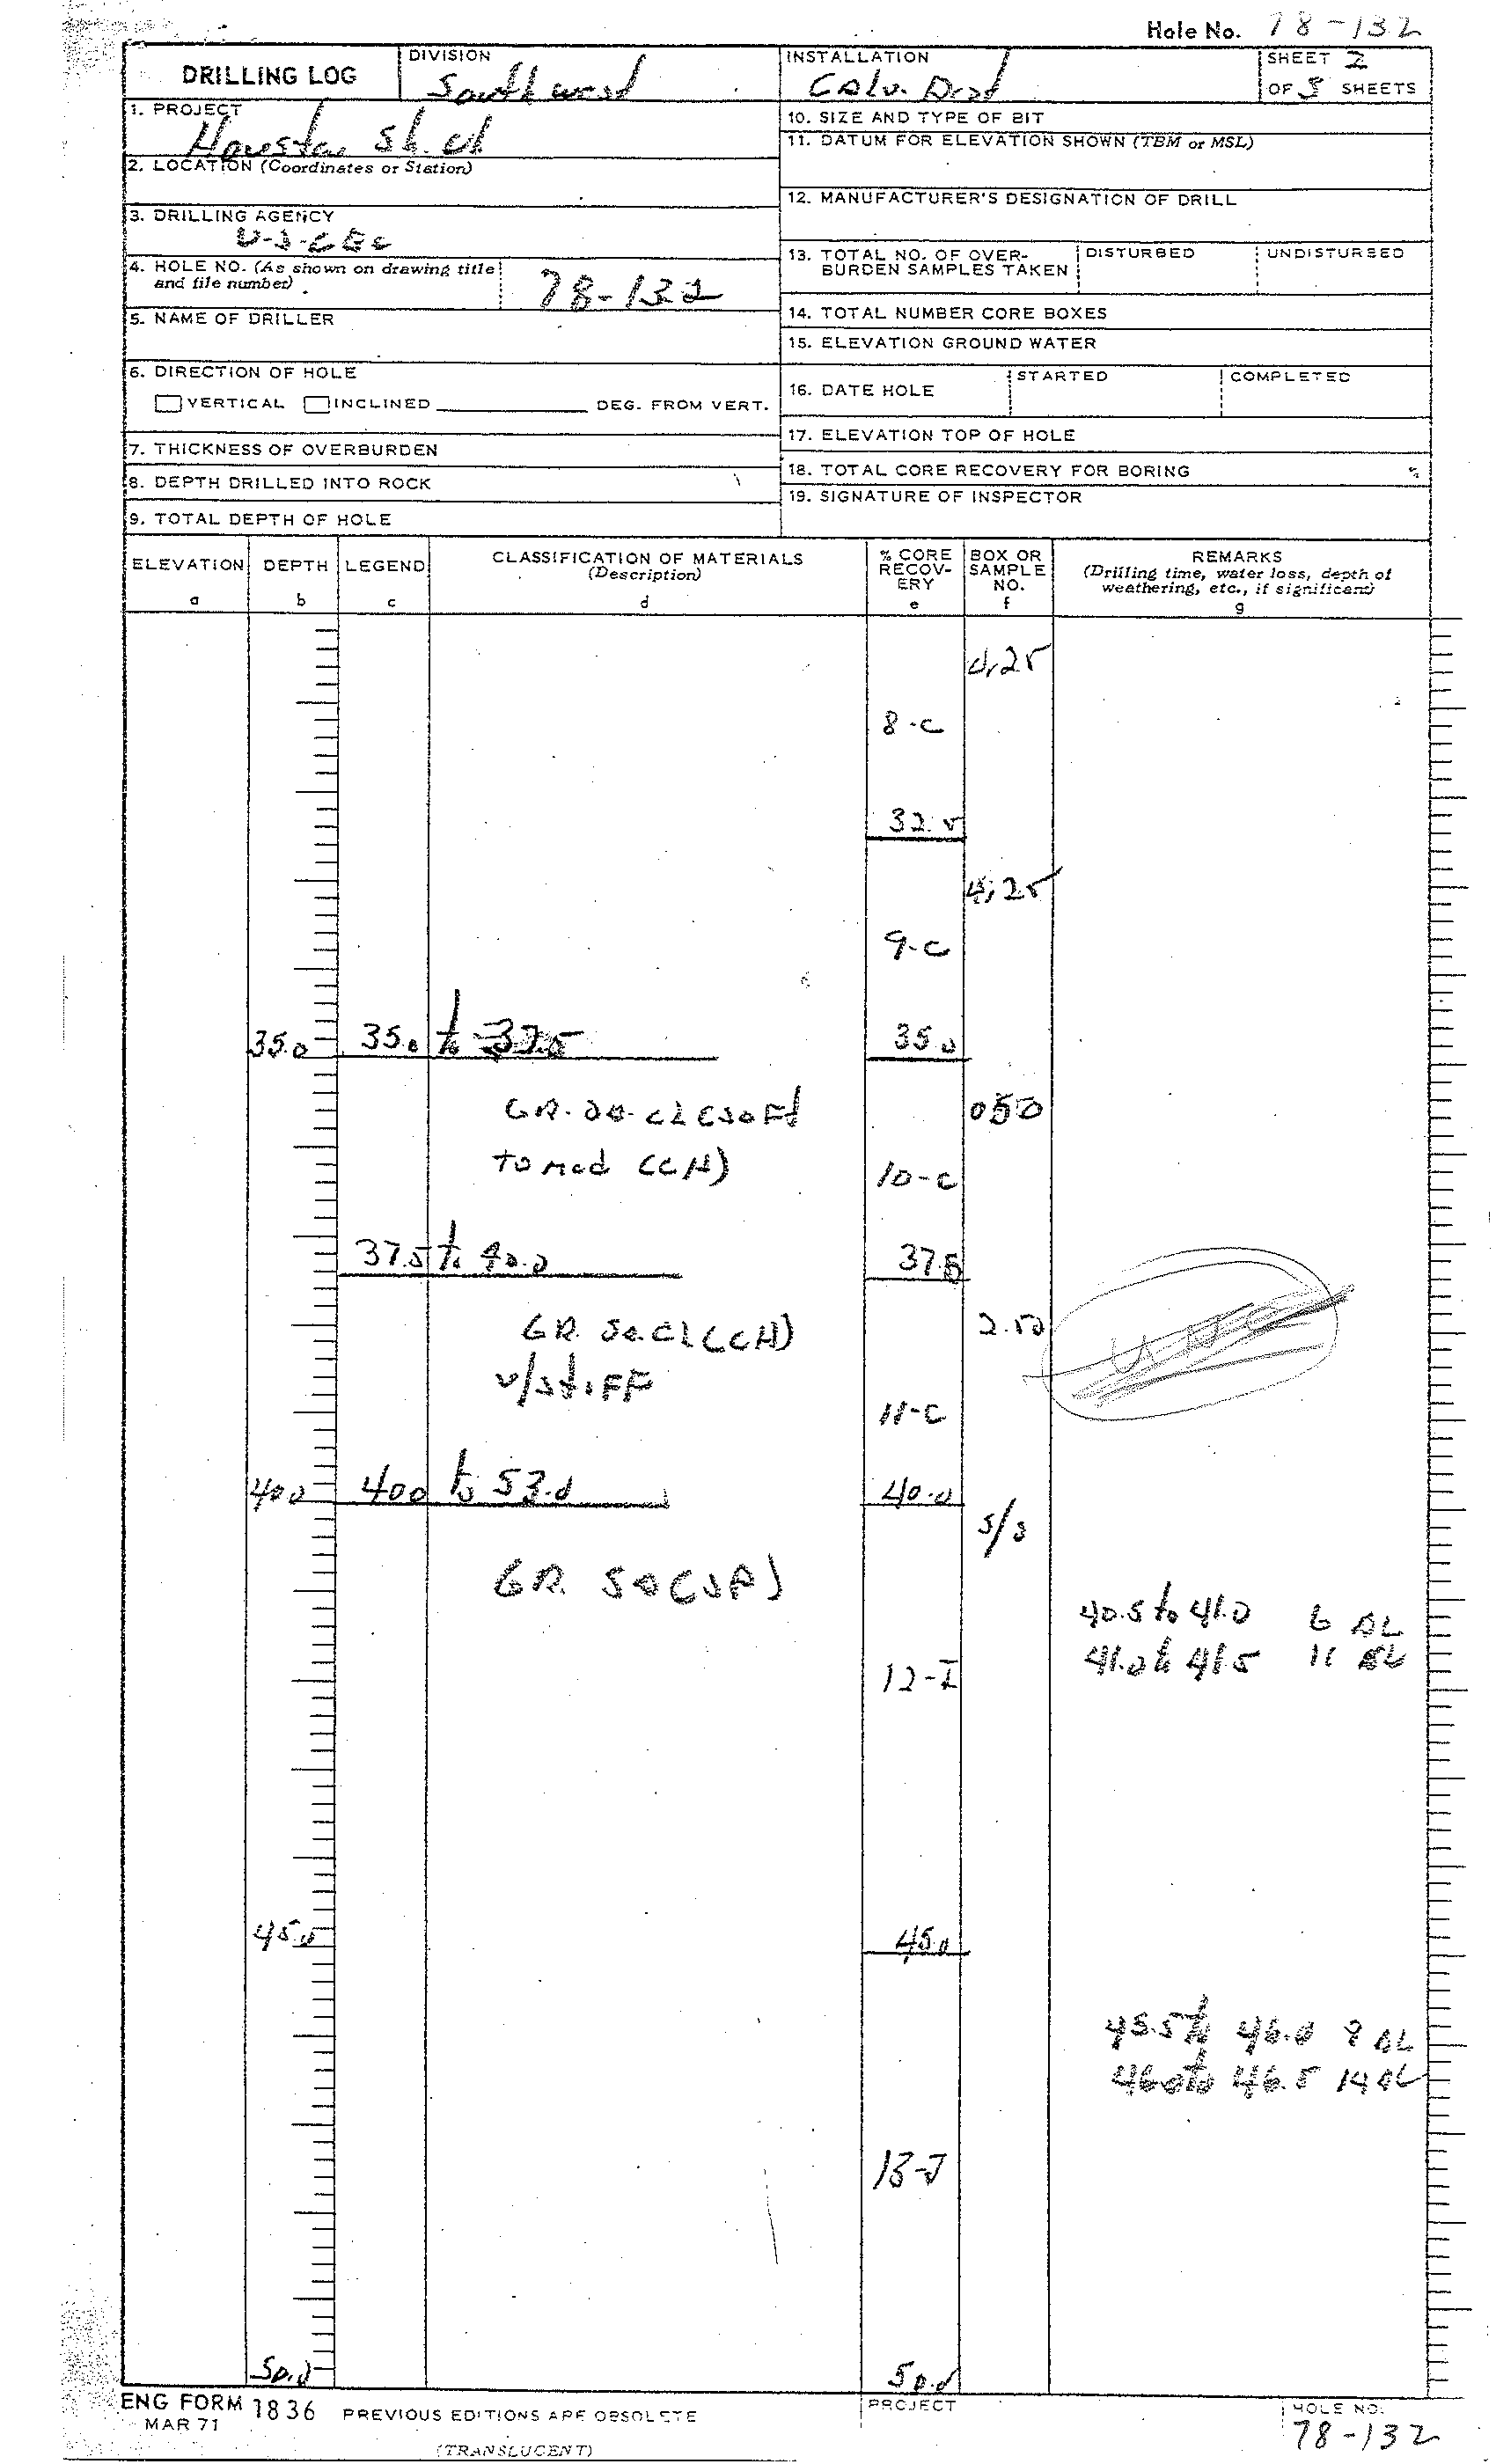 Hole No. 78-132
DRILLING LOG
DIVISION
Southwest
INSTALLATION
Galv. Dist
SHEET 2
OF 5 SHEETS
1. PROJECT
Houston Sh. Ch
2. LOCATION (Coordinates or Station)
3. DRILLING AGENCY
4. HOLE NO. (As shown on drawing title
and file number)
78-132
5. NAME OF DRILLER
6. DIRECTION OF HOLE
VERTICAL INCLINED DEG. FROM VERT.
7. THICKNESS OF OVERBURDEN
8. DEPTH DRILLED INTO ROCK
9. TOTAL DEPTH OF HOLE
10. SIZE AND TYPE OF BIT
11. DATUM FOR ELEVATION SHOWN (TBM or MSL)
12. MANUFACTURER'S DESIGNATION OF DRILL
13. TOTAL NO. OF OVER-
BURDEN SAMPLES TAKEN
DISTURBED
UNDISTURBED
14. TOTAL NUMBER CORE BOXES
15. ELEVATION GROUND WATER
16. DATE HOLE
STARTED
COMPLETED
17. ELEVATION TOP OF HOLE
18. TOTAL CORE RECOVERY FOR BORING %
19. SIGNATURE OF INSPECTOR
ELEVATION
a
DEPTH
b
LEGEND
c
CLASSIFICATION OF MATERIALS
(Description)
d
% CORE
RECOV-
ERY
e
BOX OR
SAMPLE
NO.
f
REMARKS
(Drilling time, water loss, depth of
weathering, etc., if significant)
g
4.25
8-C
32.5
4.25
9-C
35.0 35.0 to 37.5 35.0
GR. Sa. CL (Soft
to med (CH)
050
10-C
37.5 to 40.0 37.5
GR. Sa. CL (CH)
v/stiff
2.50
UNC
11-C
40.0 40.0 to 53.0 40.0
S/S
GR. Sa (SP)
40.5 to 41.0 6 BL
41.0 to 41.5 11 BL
12-J
45.0 45.0
45.5 to 46.0 8 BL
46.0 to 46.5 14 BL
13-J
50.0 50.0
ENG FORM 1836 PREVIOUS EDITIONS ARE OBSOLETE
MAR 71
(TRANSLUCENT)
PROJECT
HOLE NO.
78-132